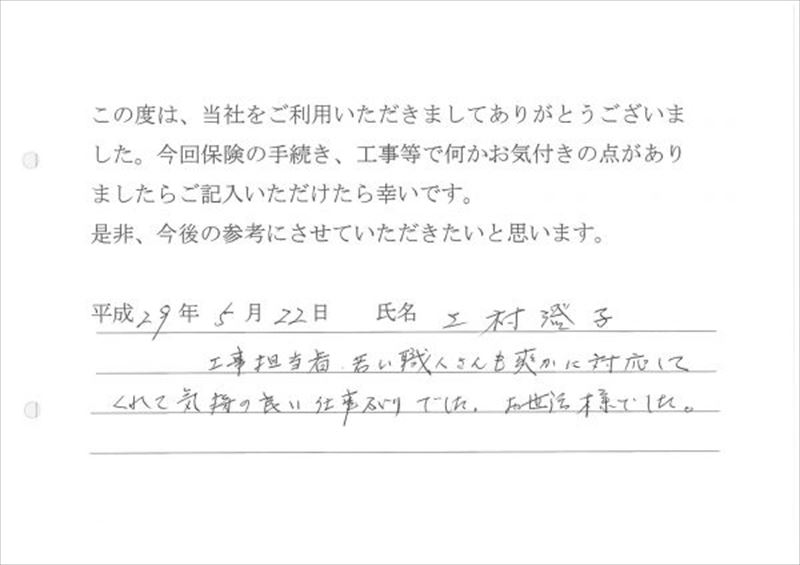 この度は、当社をご利用いただきましてありがとうございま
した。今回保険の手続き、工事等で何かお気付きの点があり
ましたらご記入いただけたら幸いです。
是非、今後の参考にさせていただきたいと思います。
平成29年5月22日 氏名 工村澄子
工事担当者、若い職人さんも爽かに対応して
くれて気持の良い仕事ぶりでした。お世話様でした。